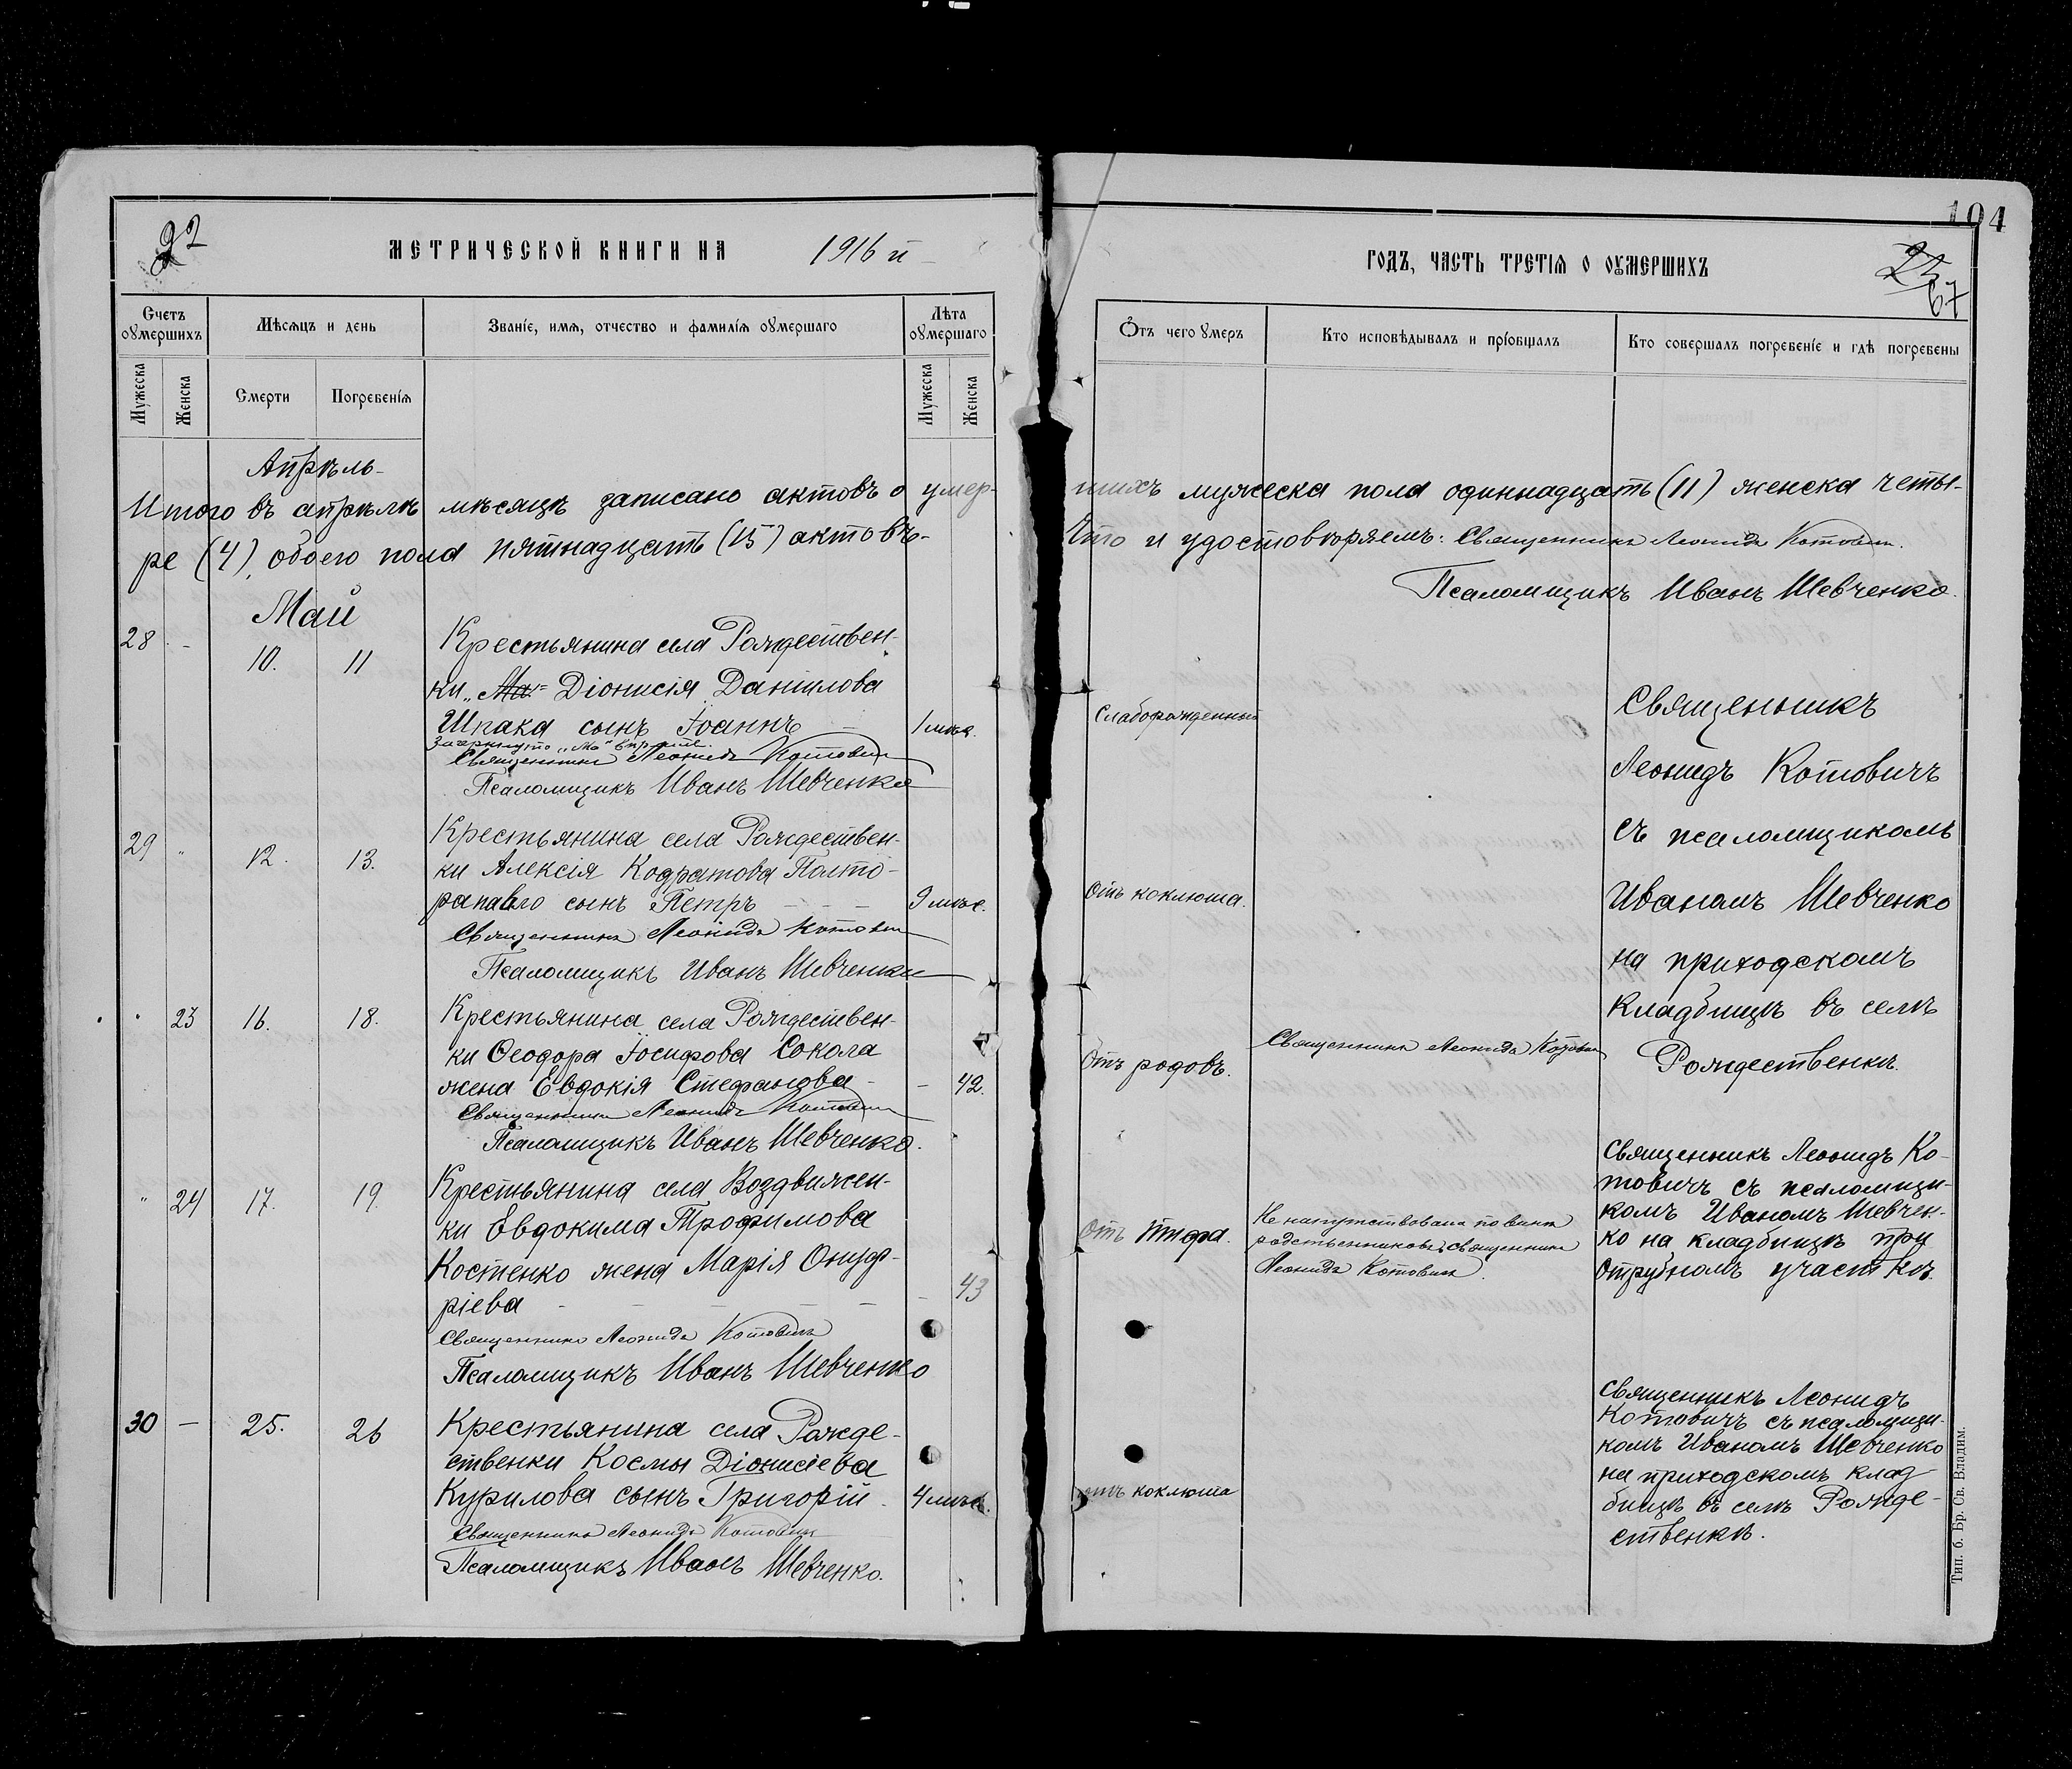 22
МЕТРИЧЕСКОЙ КНИГИ НА 1916 й
Счетъ оумершихъ
Мѣсяцъ и день
Званіе, имя, отчество и фамилія оумершаго
Лѣта оумершаго
Мужеска
Женска
Смерти
Погребенія
Мужеска
Женска
Апрѣль
Итого въ апрѣлѣ мѣсяцѣ записано актовъ о умер-
ре (4), обоего пола пятнадцать (15) актовъ-
Май
28 - 10. 11 Крестьянина села Рождествен-
ки „Ма" Діонисія Данилова
Шпака сынъ Іоаннъ - 1 мѣс.
Зачеркнуто „Ма"
Священникъ Леонидъ Котович
Псаломщикъ Иванъ Шевченко
29 " 12. 13. Крестьянина села Рождествен-
ки Алексія Кодратова Полто-
рапавло сынъ Петръ - - - 9 мѣс.
Священникъ Леонидъ Котович
Псаломщикъ Иванъ Шевченко
" 23 16. 18. Крестьянина села Рождествен-
ки Ѳеодора Іосифова Сокола
жена Евдокія Стефанова - - 42.
Священникъ Леонидъ Котович
Псаломщикъ Иванъ Шевченко.
" 24 17. 19. Крестьянина села Воздвижен-
ки Евдокима Трофимова
Костенко жена Марія Онуф-
ріева - - - - - - 43
Священникъ Леонидъ Котовичъ
Псаломщикъ Иванъ Шевченко
30 - 25. 26 Крестьянина села Рожде-
ственки Космы Діонисіева
Курилова сынъ Григорій. 4 мѣс.
Священникъ Леонидъ Котович
Псаломщикъ Иванъ Шевченко.
104
ГОДЪ, ЧАСТЬ ТРЕТІЯ О ОУМЕРШИХЪ
23
67
Отъ чего умеръ
Кто исповѣдывалъ и пріобщалъ
Кто совершалъ погребеніе и гдѣ погребены
шихъ мужеска пола одиннадцать (11) женска четы-
Что и удостовѣряемъ: Священникъ Леонидъ Котович.
Псаломщикъ Иванъ Шевченко.
Слаборожденный
Священникъ
Леонидъ Котовичъ
съ псаломщикомъ
Отъ коклюша.
Иваномъ Шевченко
на приходскомъ
кладбищѣ въ селѣ
Отъ родовъ.
Священникъ Леонидъ Котович
Рождественкѣ.
Отъ тифа.
Не напутствована по винѣ
родственниковъ, священникъ
Леонидъ Котовичъ.
Священникъ Леонидъ Ко-
товичъ съ псаломщи-
комъ Иваномъ Шевчен-
ко на кладбищѣ при
отрубномъ участкѣ.
отъ коклюша
Священникъ Леонидъ
Котовичъ съ псаломщи-
комъ Иваномъ Шевченко
на приходскомъ клад-
бищѣ въ селѣ Рожде-
ственкѣ.
Тип. б. Бр. Св. Владим.